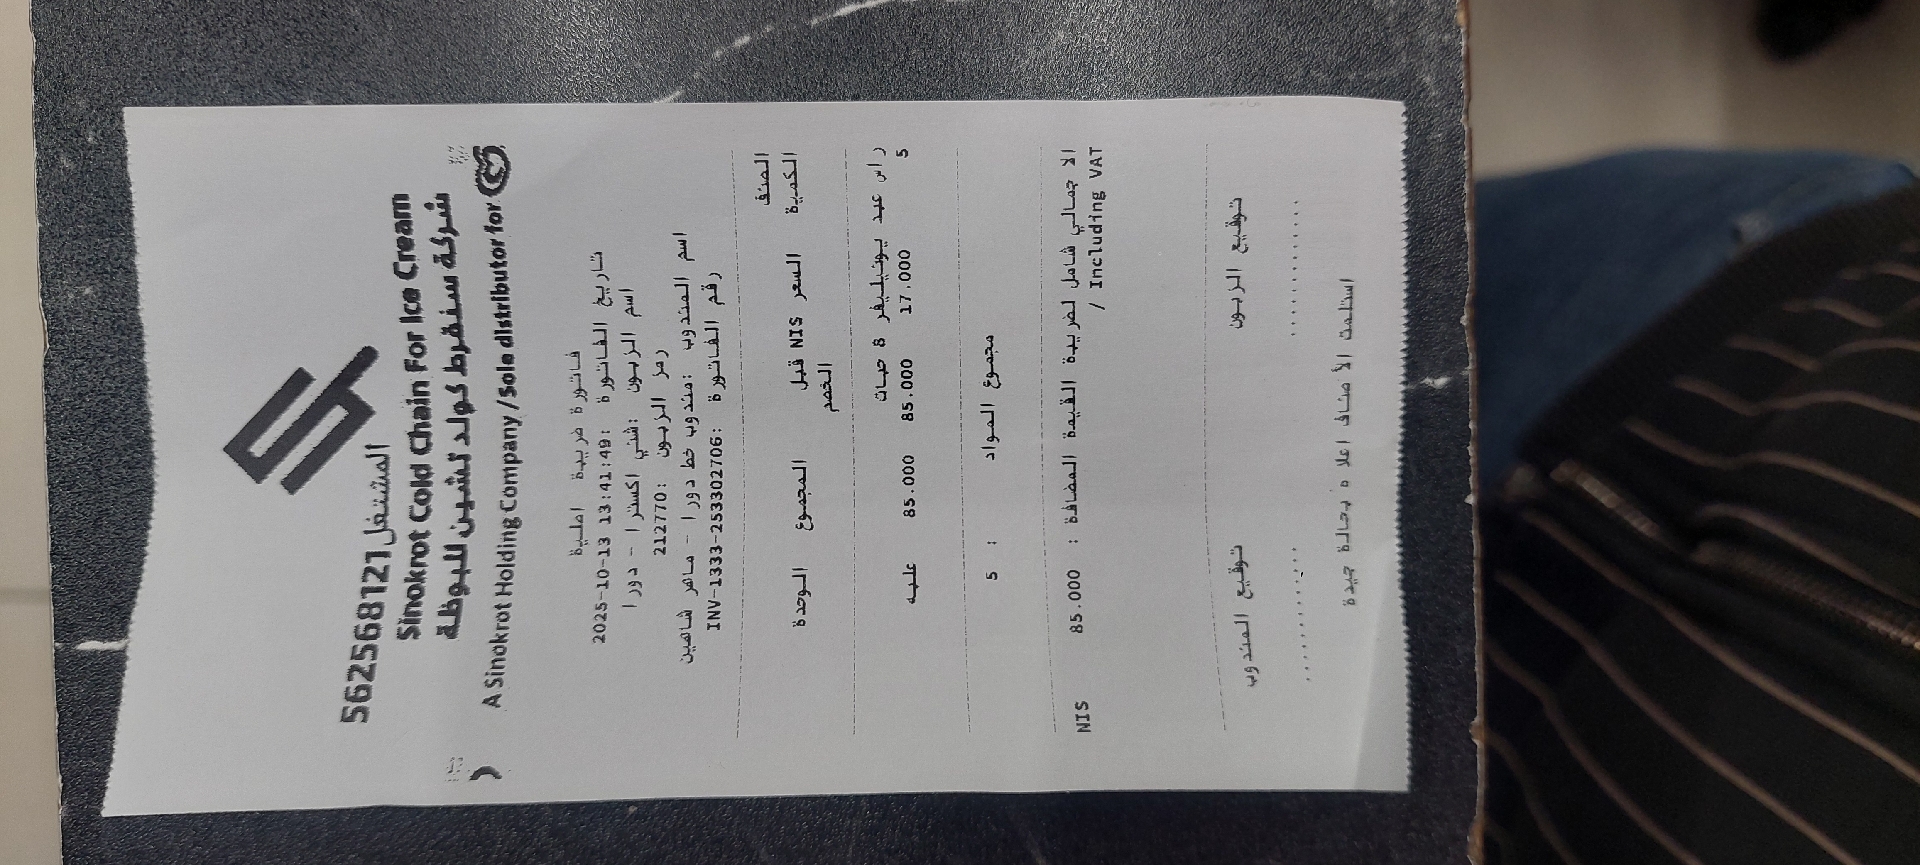 المشتغل 562568121
Sinokrot Cold Chain For Ice Cream
شركة سنقرط كولد تشين للبوظة
A Sinokrot Holding Company / Sole distributor for
فاتورة ضريبة اصلية
تاريخ الفاتورة :2025-10-13 13:41:49
اسم الزبون :شني اكسترا - دورا
رمز الزبون :212770
اسم المندوب :مندوب خط دورا - ماهر شاهين
رقم الفاتورة :INV-1333-253302706
الصنف
الكمية السعر NIS قبل الخصم المجموع الوحدة
راس عبد يونيليفر 8 حبات
5 17.000 85.000 85.000 علبه
مجموع المواد : 5
الاجمالي شامل لضريبة القيمة المضافة : 85.000 NIS
/ Including VAT
توقيع الزبون توقيع المندوب
استلمت الأصناف اعلاه بحالة جيدة